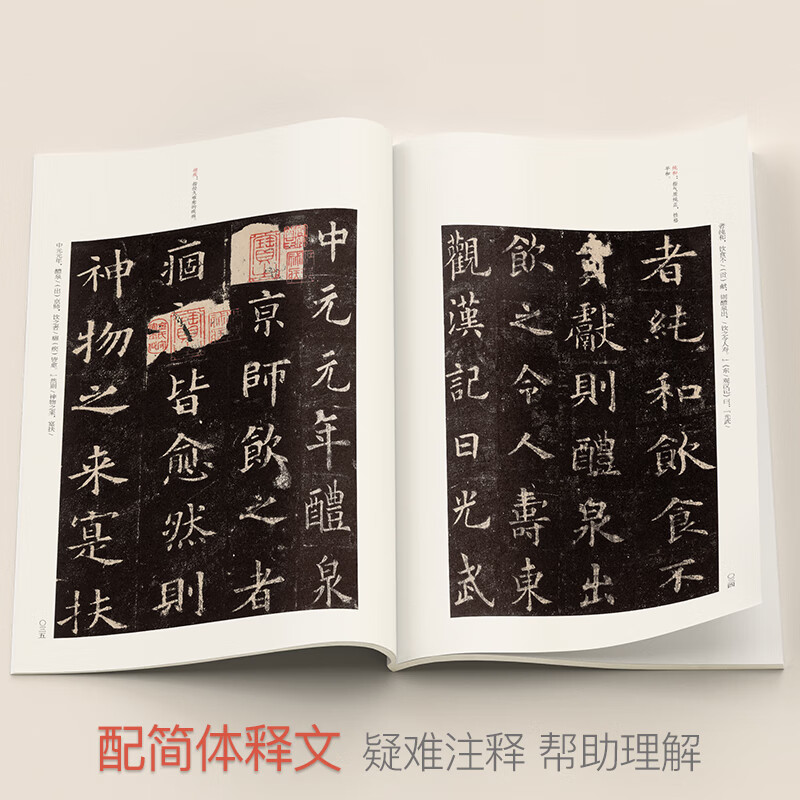 纯和：指气质纯正，性格
平和。
者純和飲食不
獻則醴泉出
飲之令人壽東
觀漢記曰光武
〇三四
中元元年醴泉
京師飲之者
痼皆愈然則
神物之来寔扶
〇三五
配简体释文 疑难注释 帮助理解